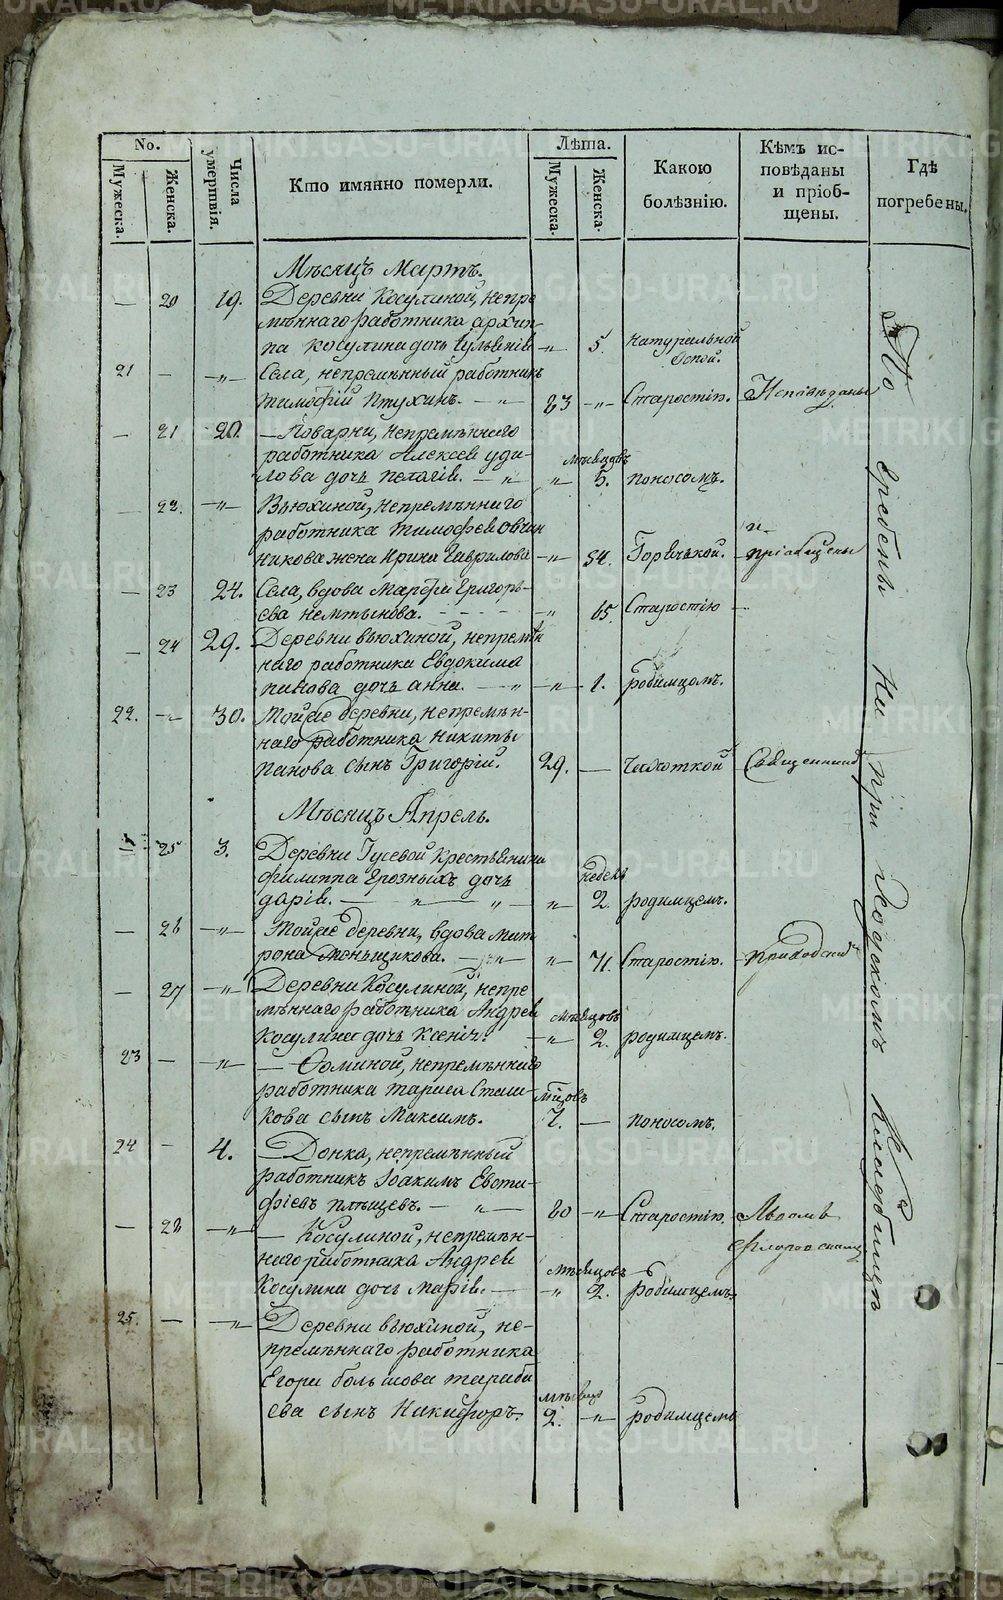 No.
Мужеска.
Женска.
Числа умертвія.
Кто имянно померли.
Лѣта.
Мужеска.
Женска.
Какою болѣзнію.
Кѣмъ ис-
повѣданы
и пріоб-
щены.
Гдѣ
погребены.
Мѣсяцъ Мартъ.
— 20 19. Деревни Косулиной, непре
мѣннаго работника Архип-
па Косулина дочь —„— 5. Натуральной
Оспой.
21 — —„— Села, непремѣнный работникъ
Тимофій Птухинъ. —„— 83 —„— Старостію. Исповѣданы
— 21 20. — Поварни, непремѣннаго
работника Алексея Уди-
мѣсяцовъ
лова дочь Пелагія. —„ „ 5. поносомъ.
— 22. —„— Вьюхиной, непремѣннаго
работника Тимофея Овчин
и
никова жена Ирина Гаврилова —„ 54. Горячькой. —пріобщены
— 23 24. Села, вдова Марфа Григорь-
ева - - - - „ 65. Старостію —
— 24 29. Деревни Вьюхиной, непремѣн
наго работника Евдокима
Панова дочь Анна. —„ —„— 1. родимцомъ.
22. —„— 30. Тойже деревни, непремѣн-
наго работника Никиты
Панова сынъ Григорій. 29. — Чахоткой Священник
Мѣсяцъ Апрель.
— 25 3. Деревни Гусевой крестьянина
Филиппа Грозныхъ дочь
недель
Дарія. — „ — „ — „ 2 родимцемъ.
— 26 —„— Тойже деревни, вдова Мат
рона Меньщикова. —„— „ 71. Старостію. —приходской
— 27 —„— Деревни Косулиной, непре
мѣннаго работника Андрея
мѣсяцовъ
Косулина дочь Ксенія. —„ 2. родимцемъ.
23 — —„— — Фоминой, непремѣннаго
работника Тараса Сташ-
мѣсяцовъ
кова сынъ Максимъ. 7. — поносомъ.
24 — 4. — Донка, непремѣнный
работникъ Іоакимъ Евста-
фіевъ —„— 80 —„— Старостію. Львомъ
Флоровскимъ
— 28 —„— — Косулиной, непремѣн-
наго работника Андрея
мѣсяцовъ
Косулина дочь Марія. — „ 2. родимцемъ.
25. — —„— Деревни Вьюхиной, не-
премѣннаго работника
Егора Большова Тараба
мѣсяца
ева сынъ Никифоръ. 2. —„— родимцемъ
Погребены на приходскомъ Кладбищѣ
METRIKI.GASO-URAL.RU